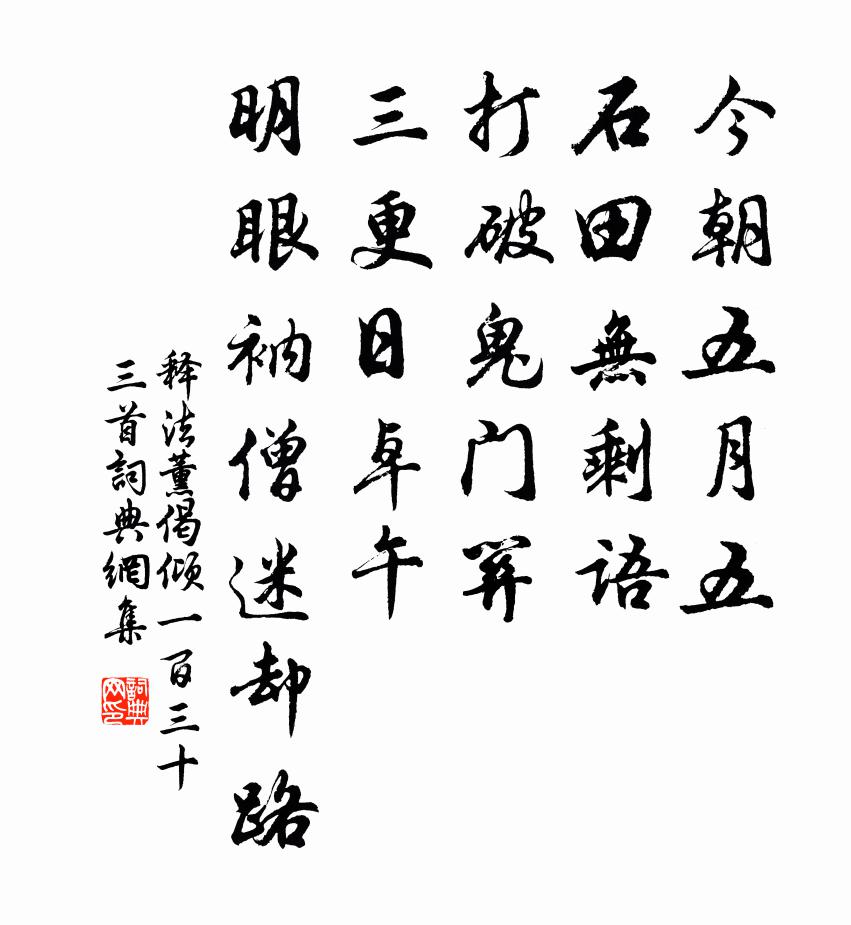 今朝五月五
石田無剩語
打破鬼门關
三更日卓午
明眼衲僧迷却路
释法薰偈倾一百三十
三首詞典網集
詞典
网印